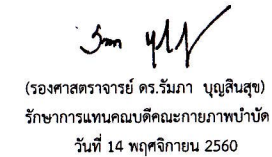 (รองศาสตราจารย์ ดร.รัมภา บุญสินสุข)
รักษาการแทนคณบดีคณะกายภาพบำบัด
วันที่ 14 พฤศจิกายน 2560